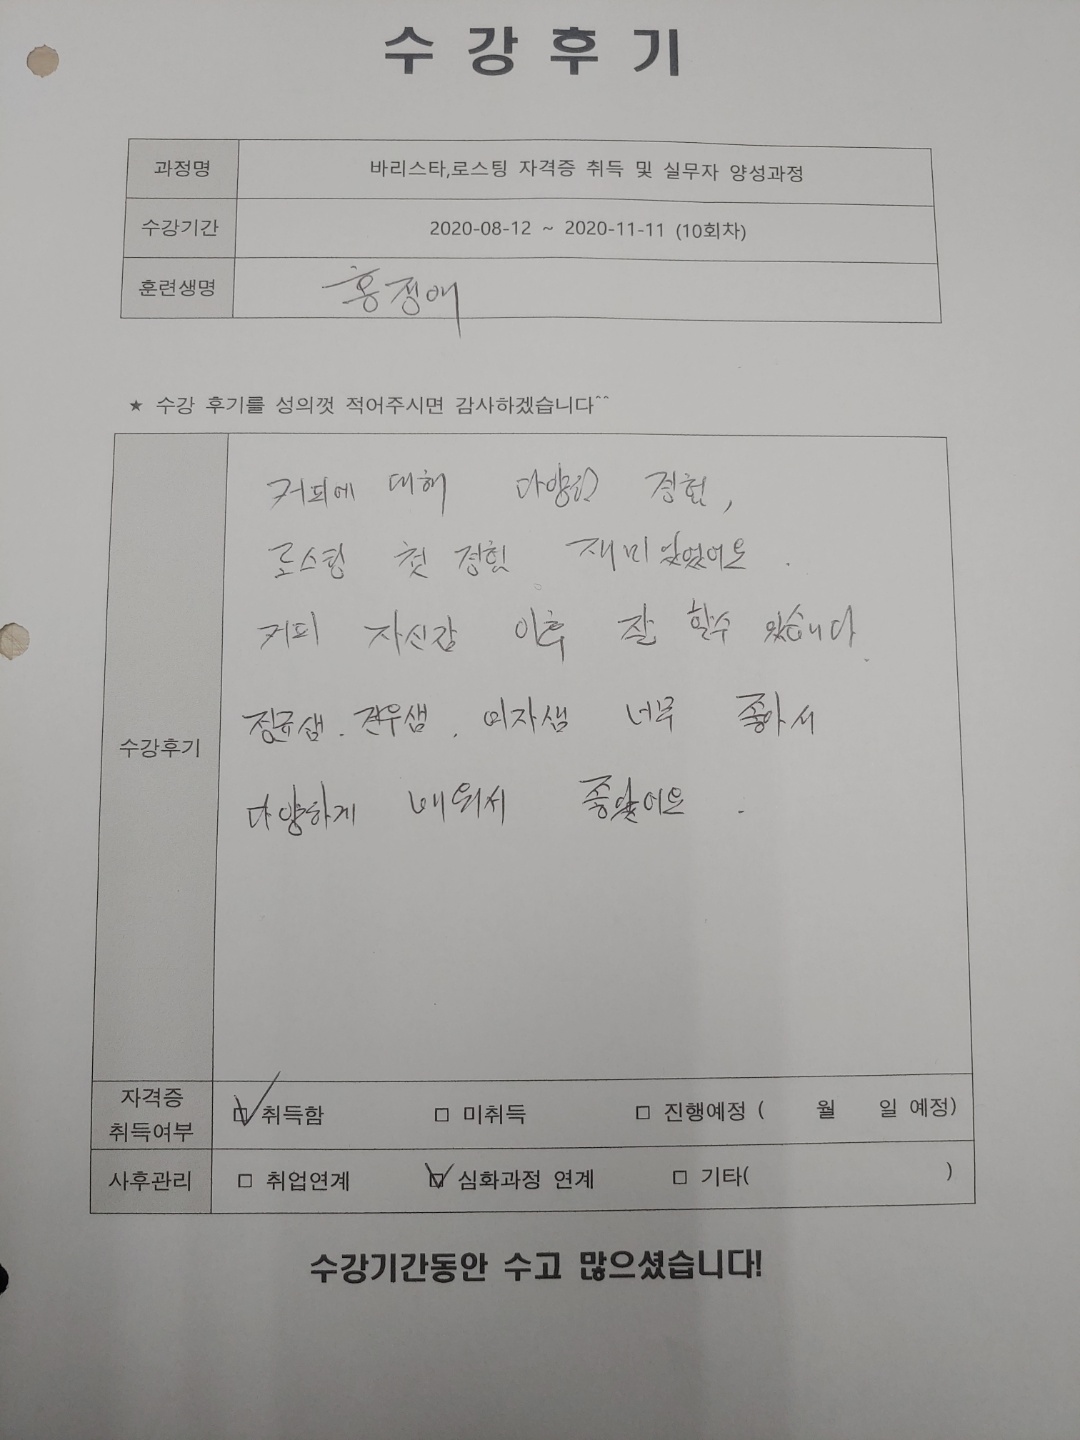 수강후기
과정명 바리스타,로스팅 자격증 취득 및 실무자 양성과정
수강기간 2020-08-12 ~ 2020-11-11 (10회차)
훈련생명 홍정애
★ 수강 후기를 성의껏 적어주시면 감사하겠습니다^^
수강후기
커피에 대해 다양한 경험,
로스팅 첫 경험 재미있었어요.
커피 자신감 이후 잘 할수 있습니다.
정규샘. 견우샘. 미자샘 너무 좋아서
다양하게 배워서 좋았어요.
자격증 취득여부 □ 취득함 □ 미취득 □ 진행예정 ( 월 일 예정)
사후관리 □ 취업연계 □ 심화과정 연계 □ 기타( )
수강기간동안 수고 많으셨습니다!